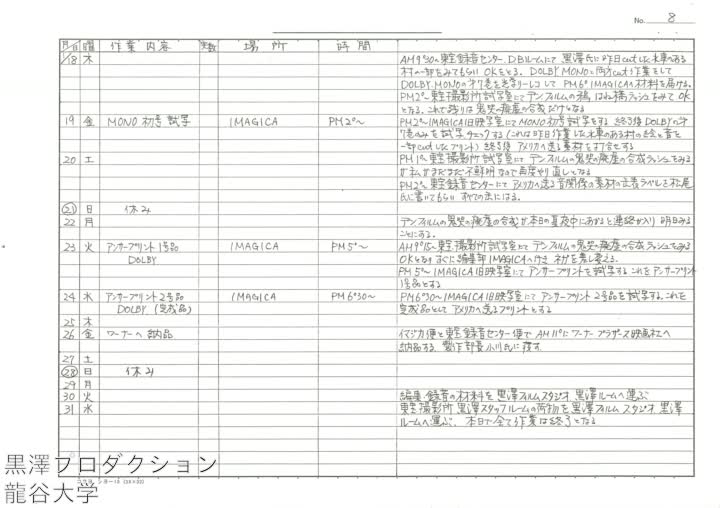 No. 8
月日 曜 作業内容 実数 場所 時間
1/18 木 AM9°30〜東宝録音センター、DBルームにて黒澤氏に昨日cutした水車のある
村の一部をみてもらい OKをとる。DOLBY MONOと両方cut作業をして
DOLBY, MONOのオ7巻を光学リーレコして PM6°IMAGICAへ材料を届ける。
PM2°〜東宝撮影所試写室にてデンフィルムの橋、はね橋ラッシュをみて OK
となる。これで残りは鬼哭の廃墟の合成だけとなる
19 金 MONO 初号 試写 IMAGICA PM2°〜 PM2°〜IMAGICA旧映写室にてMONO初号試写をする 終了後DOLBYのオ
7巻のみを試写、チェックする(これは昨日作業した水車のある村の絵と音を
一部cutしたプリント) 終了后アメリカへ送る素材を打合せする
20 土 PM1°〜東宝撮影所試写室にてデンフィルムの鬼哭の廃墟の合成ラッシュをみる
がまだまだ不鮮明なので再度やり直しとなる
PM2°〜東宝録音センターにてアメリカへ送る音関係の素材の
氏に書いてもらい
㉑ 日 休み
22 月 デンフィルムの鬼哭の廃墟の合成が本日の夜中にあがると連絡が入り 明日みる
ことにする。
23 火 アンサープリント1号品 IMAGICA PM5°〜 AM9°15〜東宝撮影所試写室にてデンフィルムの鬼哭の廃墟の合成ラッシュをみる
DOLBY OKとなりすぐに編集部 IMAGICAへ行き ネガを差し変える。
PM5°〜IMAGICA旧映写室にてアンサープリントを試写する これをアンサープリント
1号品とする
24 水 アンサープリント2号品 IMAGICA PM6°30〜 PM6°30〜IMAGICA旧映写室にてアンサープリント2号品を試写する。これを
DOLBY (完成品) 完成品としてアメリカへ送るプリントとする
25 木
26 金 ワーナーへ納品 イマジカ便と東宝録音センター便で AM11°にワーナーブラザース映画社へ
納品する、製作部長小川氏に渡す。
27 土
㉘ 日 休み
29 月
30 火 編集 録音の材料を黒澤フィルムスタジオ、黒澤ルームへ運ぶ
31 水 東宝撮影所 黒澤スタッフルームの荷物を黒澤フィルムスタジオ 黒澤
ルームへ運ぶ、本日で全て作業は終了となる
黒澤プロダクション
龍谷大学